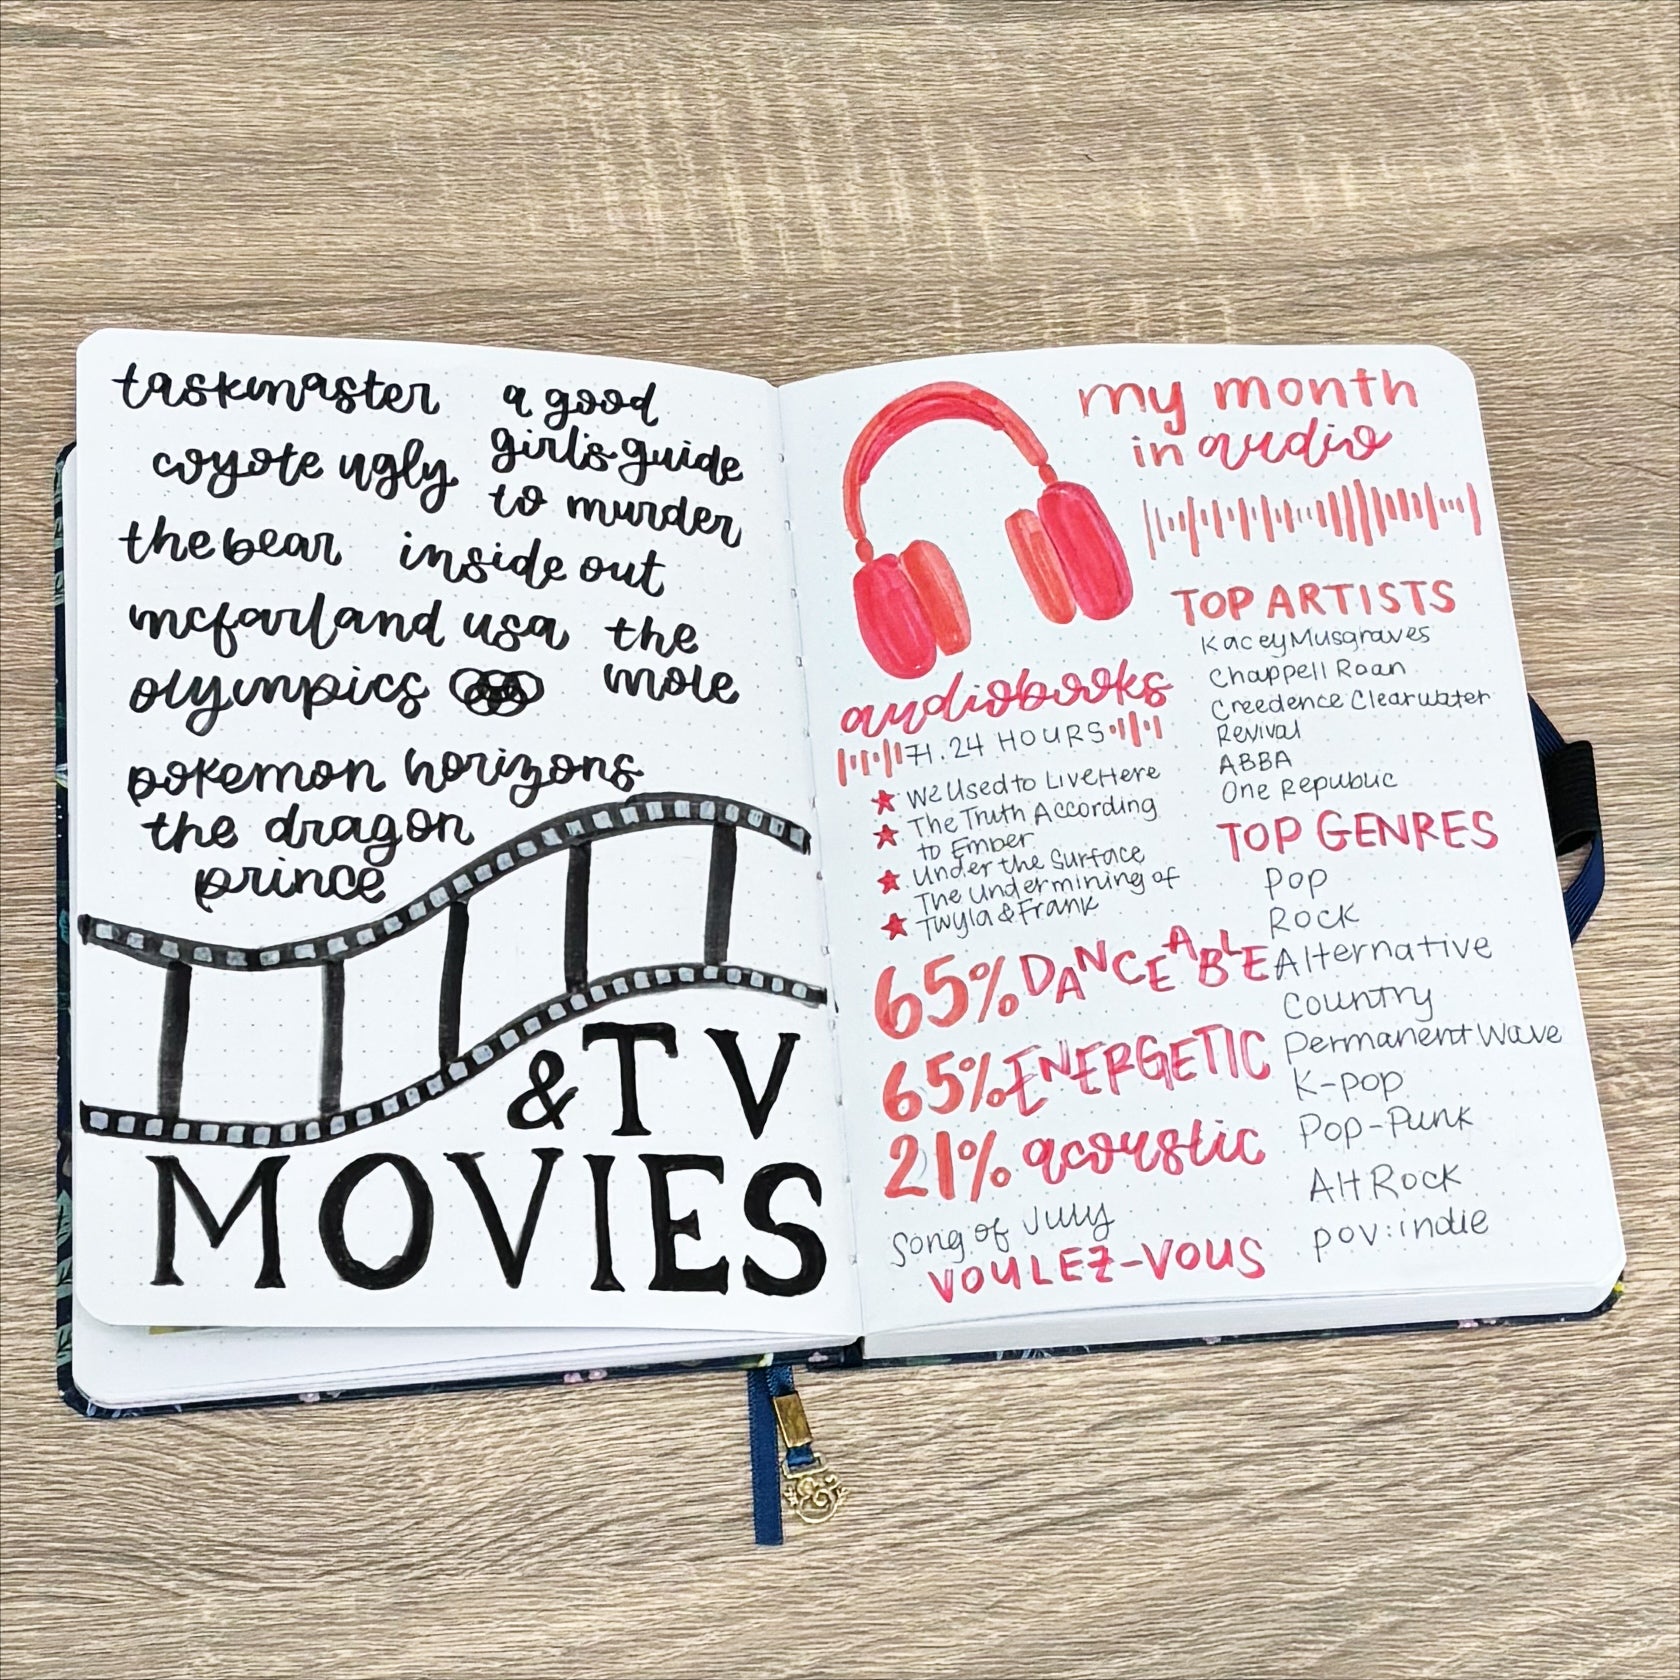 taskmaster
a good
girl's guide
to murder
coyote ugly
the bear
inside out
mcfarland usa
the
mole
olympics
pokemon horizons
the dragon
prince
& TV
MOVIES
my month
in audio
audiobooks
71.24 HOURS
We Used to Live Here
The Truth According
to Ember
Under the Surface
The Undermining of
Twyla & Frank
65% DANCEABLE
65% ENERGETIC
21% acoustic
Song of July
VOULEZ-VOUS
TOP ARTISTS
Kacey Musgraves
Chappell Roan
Creedence Clearwater
Revival
ABBA
One Republic
TOP GENRES
Pop
Rock
Alternative
Country
Permanent Wave
K-pop
Pop-Punk
Alt Rock
pov: indie